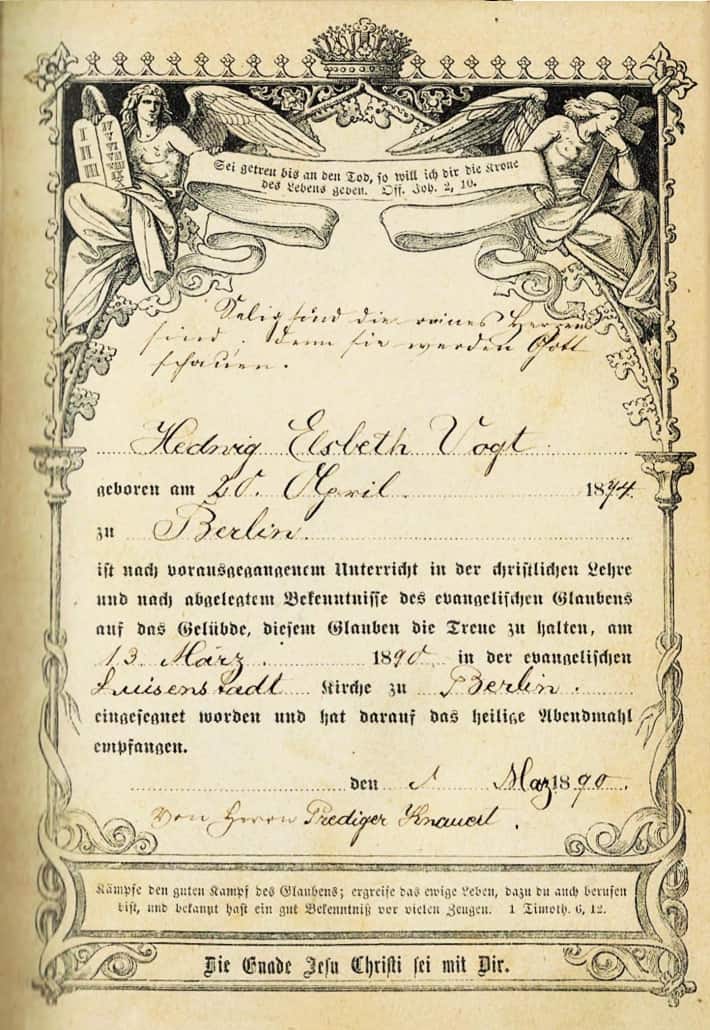 I
II
III
IV
V
VI
VII
VIII
IX
X
Sei getreu bis an den Tod, so will ich dir die Krone
des Lebens geben. Off. Joh. 2, 10.
Selig sind die reines Herzens
sind. denn sie werden Gott
schauen.
Hedwig Elsbeth Vogt
geboren am 20. April 1874.
zu Berlin.
ist nach vorausgegangenem Unterricht in der christlichen Lehre
und nach abgelegtem Bekenntnisse des evangelischen Glaubens
auf das Gelübde, diesem Glauben die Treue zu halten, am
13. März. 1890 in der evangelischen
Luisenstadt Kirche zu Berlin.
eingesegnet worden und hat darauf das heilige Abendmahl
empfangen.
den 1 Maz 1890.
Von Herrn Prediger
Kämpfe den guten Kampf des Glaubens; ergreife das ewige Leben, dazu du auch berufen
bist, und bekannt hast ein gut Bekenntniß vor vielen Zeugen. 1 Timoth. 6, 12.
Die Gnade Jesu Christi sei mit Dir.